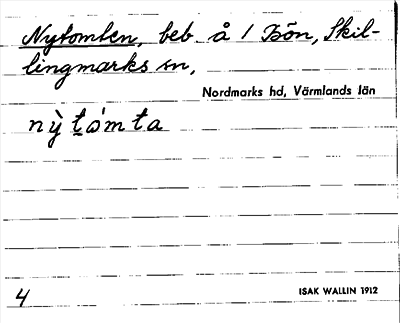 Nytomten, beb. å 1 Bön, Skil-
lingmarks sn,
Nordmarks hd, Värmlands län
nỳ tǿmta
4
ISAK WALLIN 1912